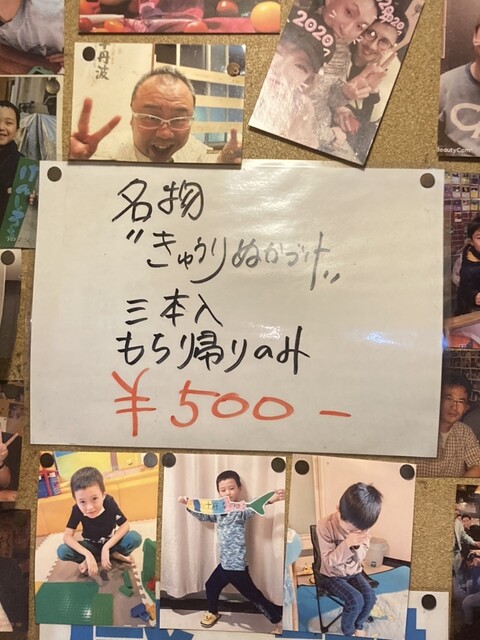 丹波
2020
2020
BeautyCam
名物
"きゅうりぬかづけ"
三本入
もちり帰りのみ
¥500-